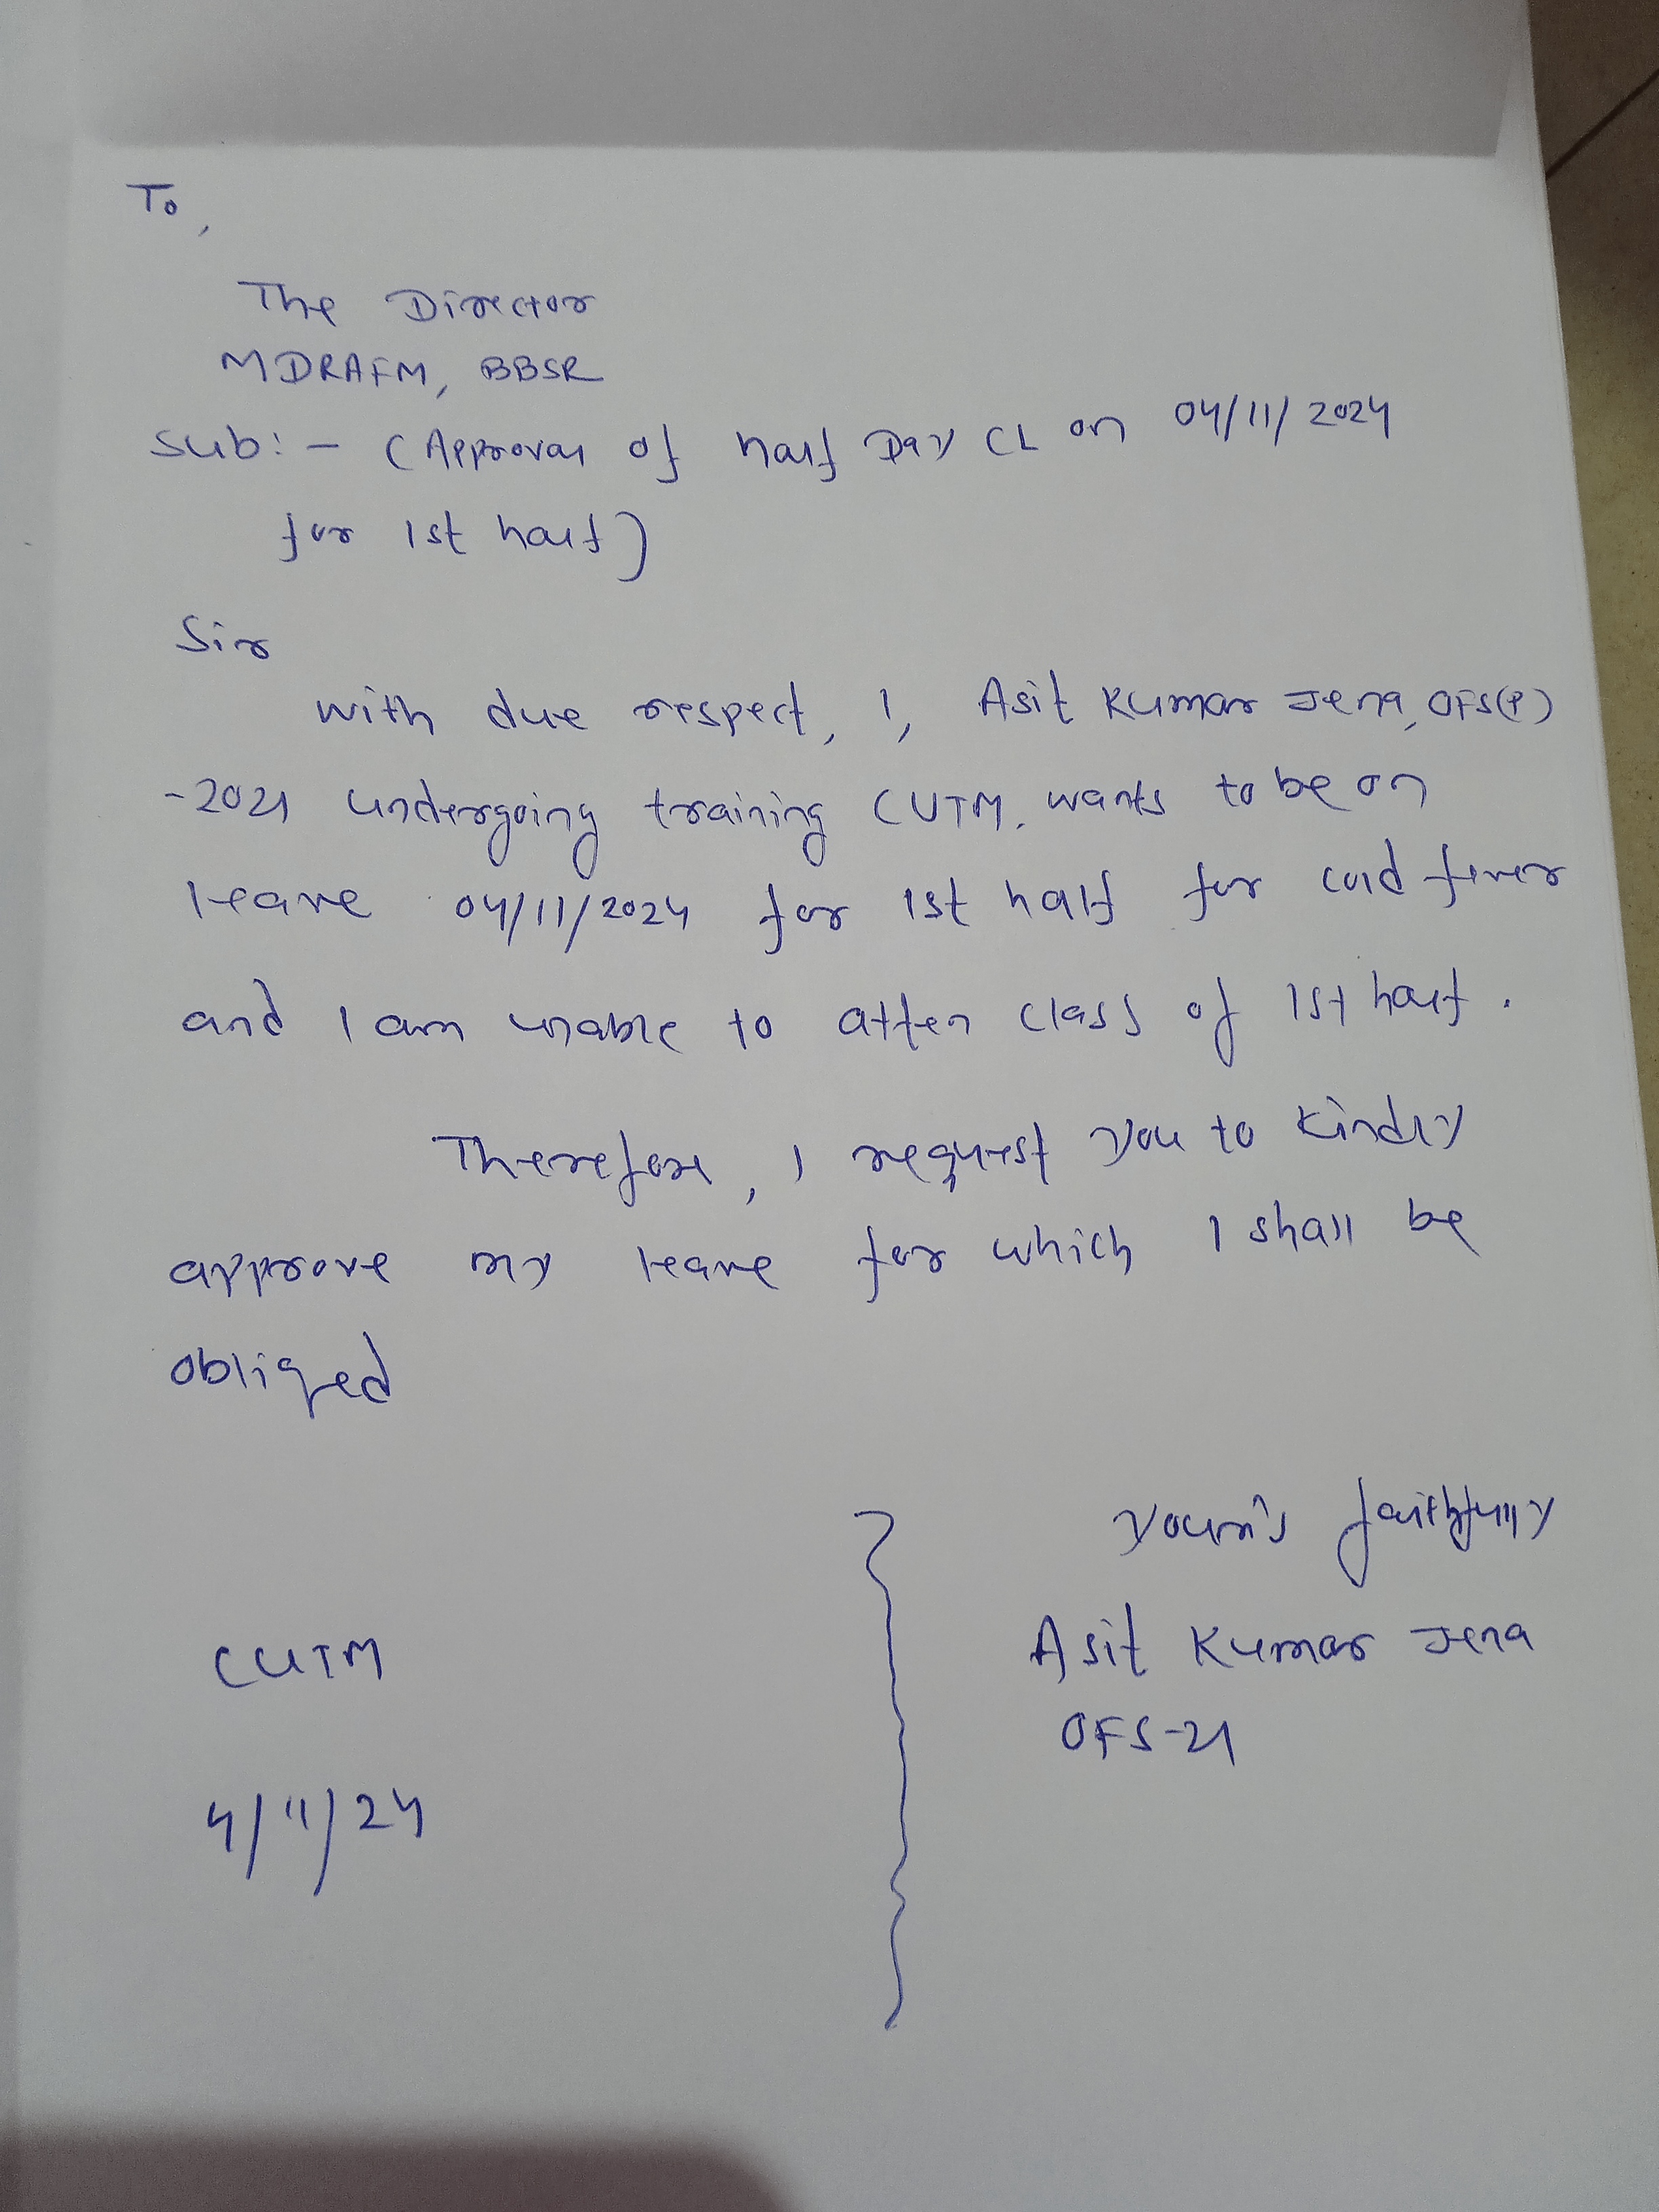 To,
The Director
MDRAFM, BBSR
Sub:- (Approval of half Day CL on 04/11/2024
for 1st half)
Sir
with due respect, I, Asit Kumar Jena, OFS(P)
-2021 undergoing training CUTM, wants to be on
leave 04/11/2024 for 1st half for cold fever
and I am unable to atten class of 1st half.
Therefore, I request you to kindly
approve my leave for which I shall be
obliged
Your's faithfully
CUTM
Asit Kumar Jena
OFS-21
4/11/24